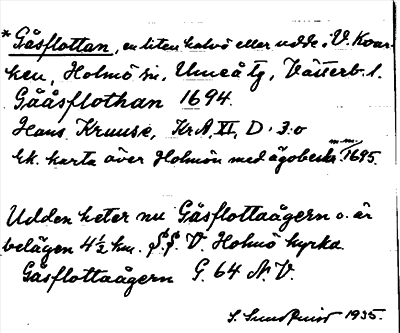 * Gåsflottan, en liten halvö eller udde i V. Kvar-
ken, Holmö sn, Umeå Tg, Västerb. l.
Gååsflothan 1694.
Hans Kruuse, Kr.A. XI, D. 3:0
Ek. karta över Holmön med ägobeskr. m.m. 1695.
Udden heter nu Gåsflottaågern o. är
belägen 4½ km. S.S.V. Holmö kyrka.
Gåsflottaågern G. 64 N.V.
S. Sundquist 1935.